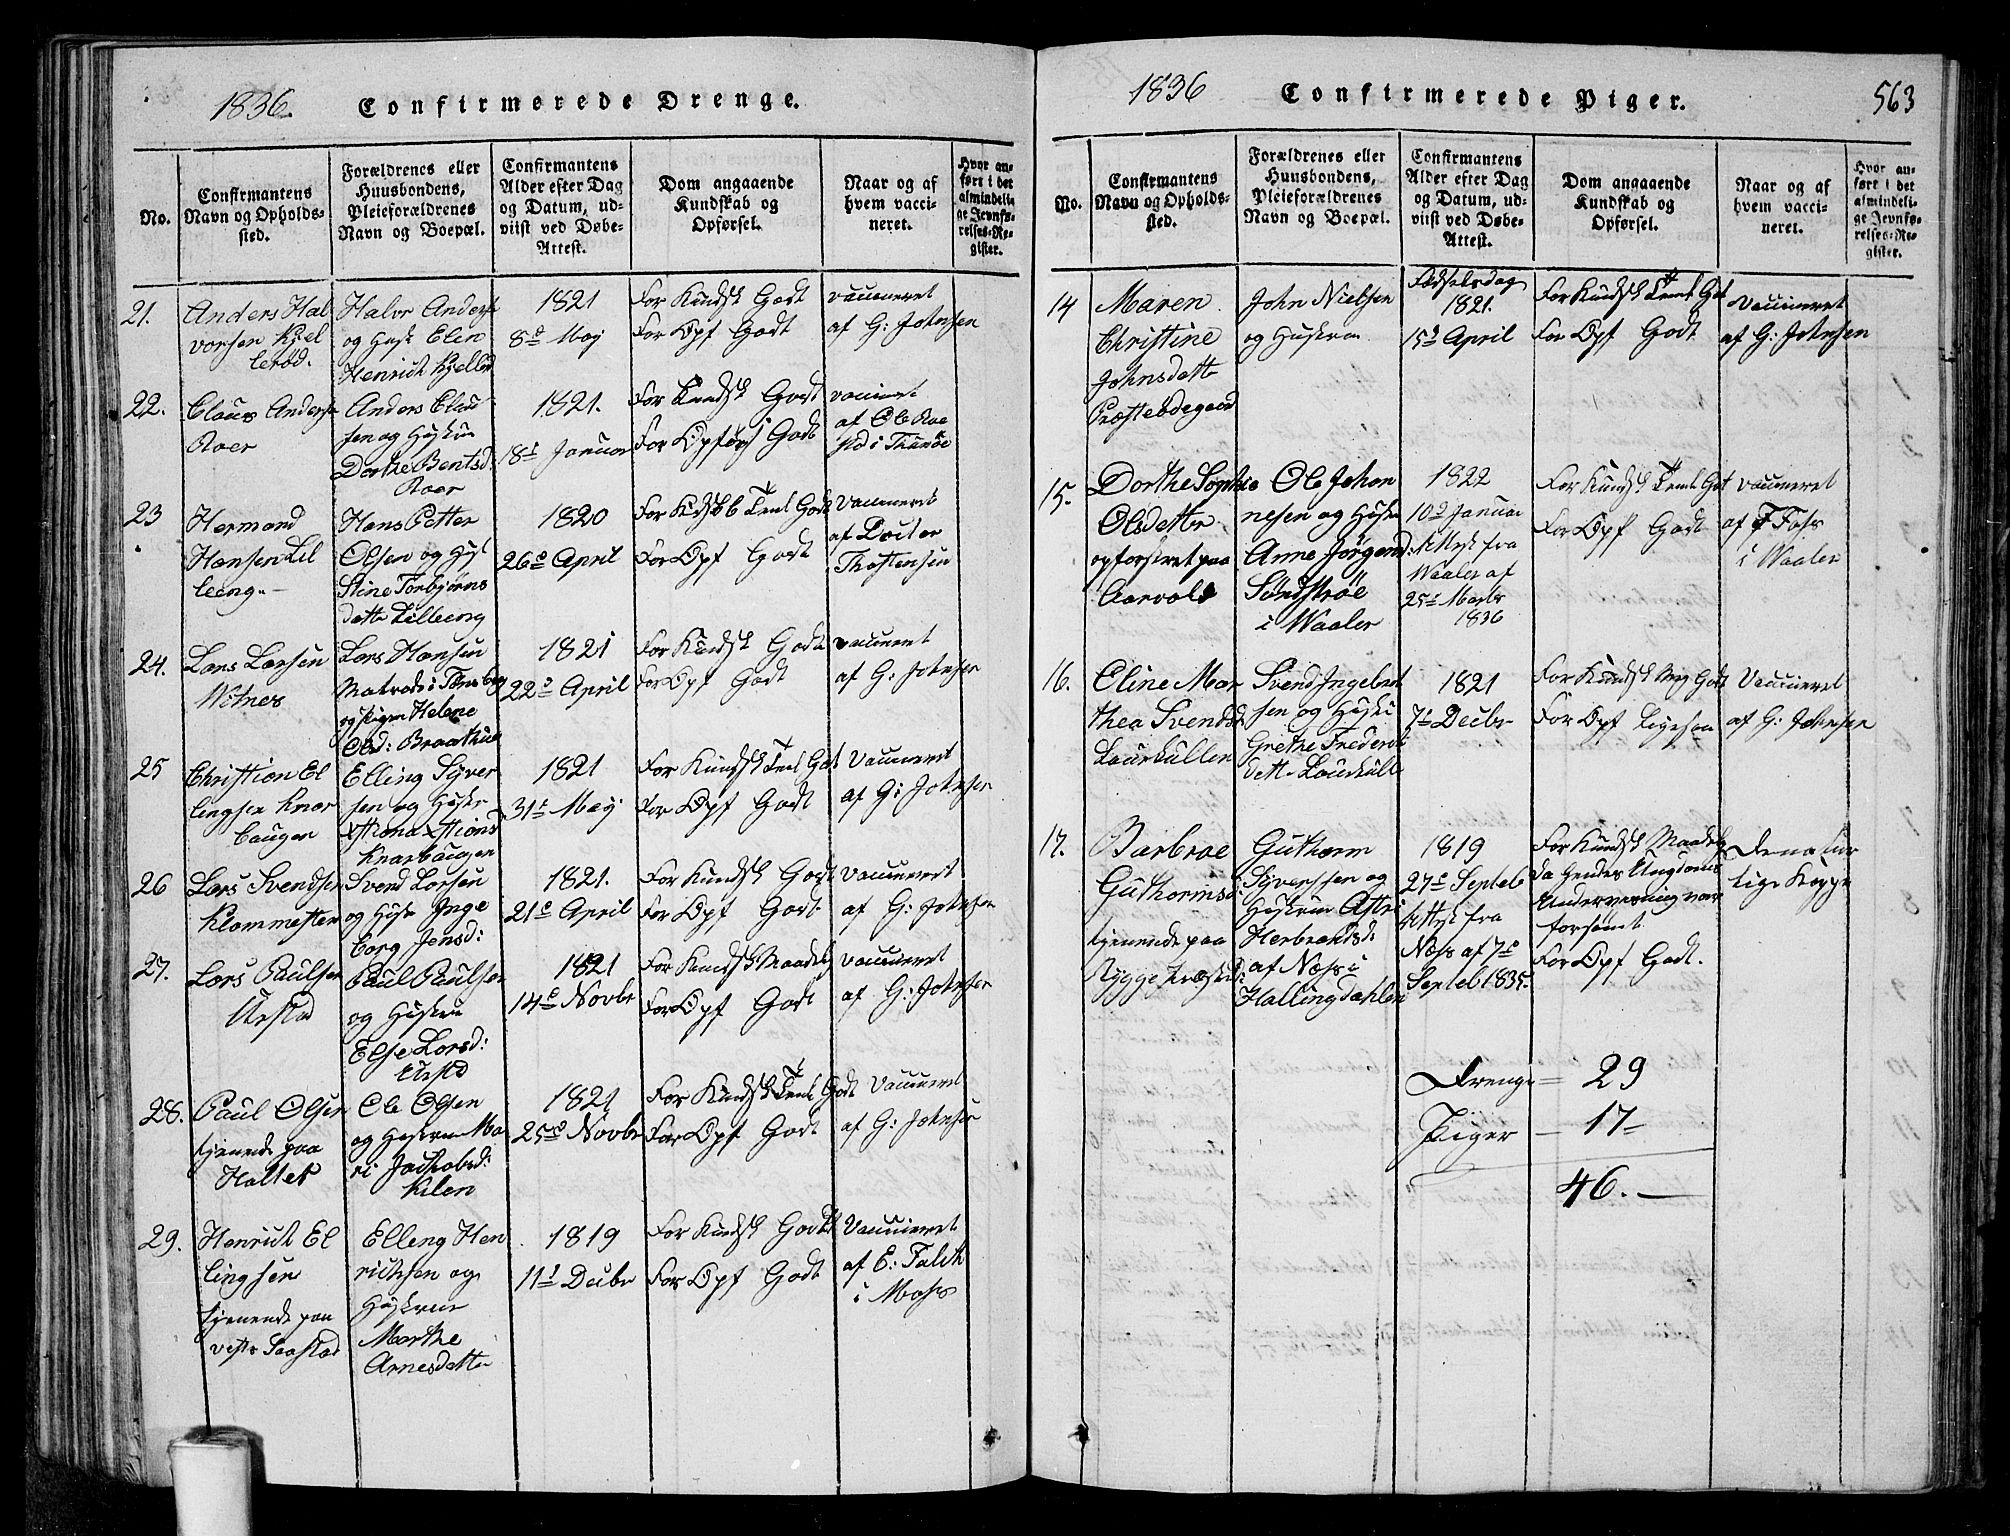 1836. Confirmerede Drenge.
No.
Confirmantens
Navn og Opholds-
sted.
Forældrenes eller
Huusbondens,
Pleieforældrenes
Navn og Boepæl.
Confirmantens
Alder efter Dag
og Datum, ud-
viist ved Døbe-
Attest.
Dom angaaende
Kundskab og
Opførsel.
Naar og af
hvem vacci-
neret.
Hvor an-
ført i det
almindeli-
ge Jevnfø-
relses-Re-
gister.
21.
Anders Hal
vorsen Kjel
lerød.
Halvor Anders
og Husk Elen
Henrich Kjellerød
1821
8d May
For Kundsk Godt
For Opf Godt
vaccineret
af G: Johnsen
22.
Claus Anderse
Roer
Anders Clau
sen og Huskru
Dorthe Bentsd:
Roer
1821.
18d Januar
For Kundsk Godt
For Opførs Godt
vaccinet
af Ole Roe
i Thurøe
23
Hermand
Hansen Lil
leeng.
Hans Petter
Olsen og Hus
Stine Torbjørns
datte Lilleeng
1820
26d April
For Kdsk Teml Godt
For Opf Godt
Vaccineret
af
Thostensen
24.
Lars Larsen
Witnes
Lars Hansen
Matrods i Tønsberg
og Pigen Helene
Olsd: Braathue
1821
22d April
For Kundsk Godt
For Opf Godt
vaccineret
af G: Johnsen
25
Christian El
lingsen Knar
bougen
Elling Syver
sen og Huskr
Knarbaugen
1821
31t May
For Kundsk Teml Got
For Opf Godt
Vaccineret
af G: Johnsen
26
Lars Svendsen
Klommesten
Svend Larsen
og Huskr Inge
borg Jensd:
1821.
21d April
For Kundsk Godt
For Opf Godt
Vaccineret
af G: Johnsen
27.
Lars Paulsen
Urstad
Paul Paulsen
og Huskru
Else Larsd:
Urstd
1821
14d Novbr
For Kundsk Maadelg
For Opf Godt
vaccineret
af G: Johnsen
28.
Paul Olsen
tjenende paa
Haltet
Ole Olsen
og Huskrue Ma
ri Jackobsd:
Kilen
1821
25d Novbr
For Kundsk Teml Godt
For Opf Godt
Vaccineret
af G: Johnsen
29.
Henrich El
lingsen
tjenende paa
vestr Saastad
Elleng Hen
richsen og
Huskrue
Marthe
Arnesdatte
1819
11t Decbr
For Kundsk Godt
For Opf Godt
Vaccineret
af E: Falck
i Moss
1836 Confirmerede Piger. 563
No.
Confirmantens
Navn og Opholds-
sted.
Forældrenes eller
Huusbondens,
Pleieforældrenes
Navn og Boepæl.
Confirmantens
Alder efter Dag
og Datum, ud-
viist ved Døbe-
Attest.
Dom angaaende
Kundskab og
Opførsel.
Naar og af
hvem vacci-
neret.
Hvor an-
ført i det
almindeli-
ge Jevnfø-
relses-Re-
gister.
14
Maren
Christine
Johnsdatte
Præstebdegaard
John Nielsen
og Huskrue
Fødselsdag
1821.
15d April
For Kundsk Teml Got
For Opf Godt
Vaccineret
af G: Johnsen
15.
Dorthe Sophie
Olsdatter
opfostret paa
Aarvold
Ole Johan
nesen og Huskr
Anne Jørgensd:
Sundstrøe
i Waaler
1822
10d Januar
Attest fra
Waaler af
25d Marts
1836
For Kundsk Teml Got
For Opf Godt
vaccineret
af F Foss
i Waaler
16.
Eline Mar
thea Svendsd
Laurkullen
Svend Ingebret
sen og Huskr
Grethe Frederiks
datt Laurkull
1821
7d Decbr
For Kundsk Meg Godt
For Opf Ligesaa
Vaccineret
af G: Johnsen
17.
Barbroe
Guthormsd:
tjenende paa
Rygge Præsteg:
Guthorm
Syversen og
Huskrue Astri
Herbrandsd:
af Næss i
Hallingdahlen
1819
27d Septeb
Attest fra
Næss af 7d
Septeb 1835.
For Kundsk Maadelg
da hendes Ungdoms
Underviisning var
forsømt
For Opf Godt.
De natur
lige Kopper
Drenge = 29
Piger — 17
46.